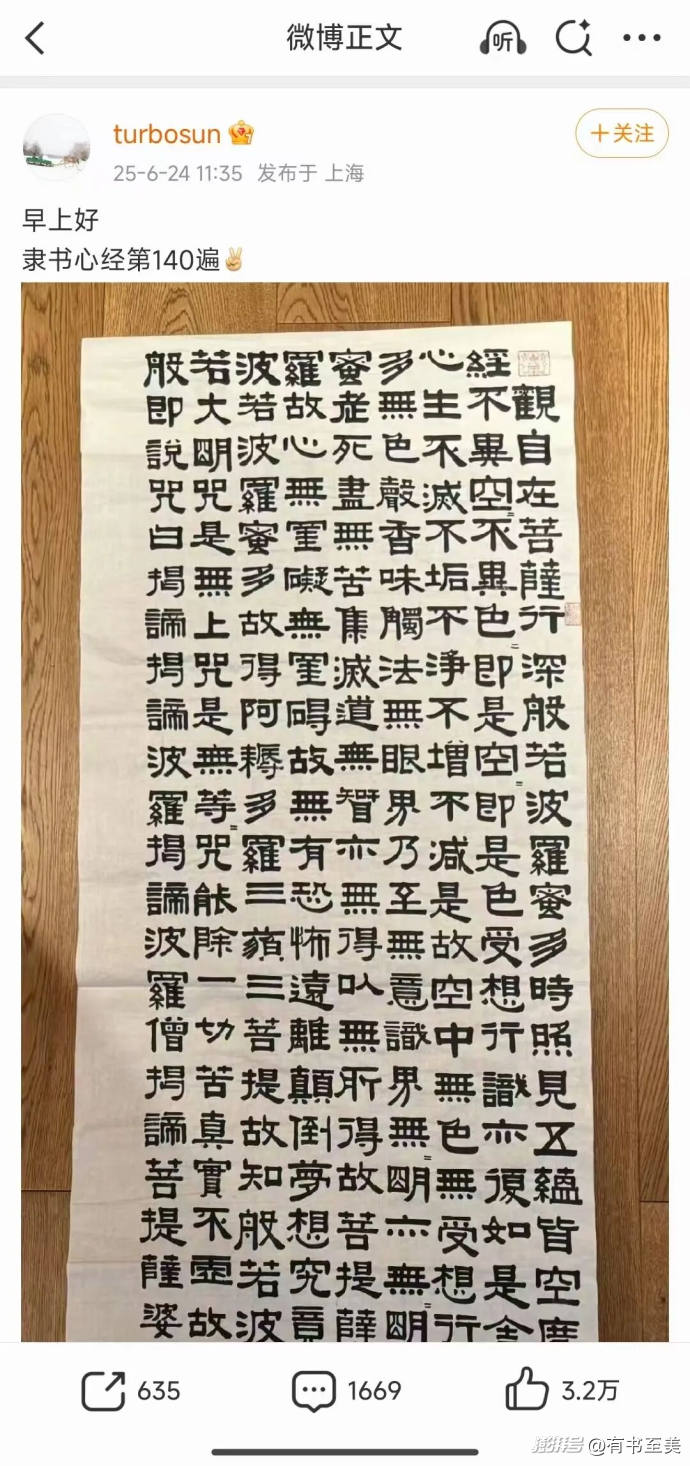 微博正文
听
turbosun
25-6-24 11:35 发布于 上海
+关注
早上好
隶书心经第140遍✌🏻
般若波羅蜜多心經
觀自在菩薩行深般若波羅蜜多時照見五蘊皆空度
不異空=不異色=即是空=即是色受想行識亦復如是舍
生不滅不垢不淨不增不減是故空中無色無受想行
無色聲香味觸法無眼界乃至無意識界無=明亦無=明
老死盡無苦集滅道無智亦無得以無所得故菩提薩
故心無罣礙無罣碍故無有恐怖遠離顛倒夢想究竟
若波羅蜜多故得阿耨多羅三藐三菩提故知般若波
大明咒是無上咒是無等=咒能除一切苦真實不虛故
即說咒曰揭諦揭諦波羅揭諦波羅僧揭諦菩提薩婆
635
1669
3.2万
澎湃号 @有书至美